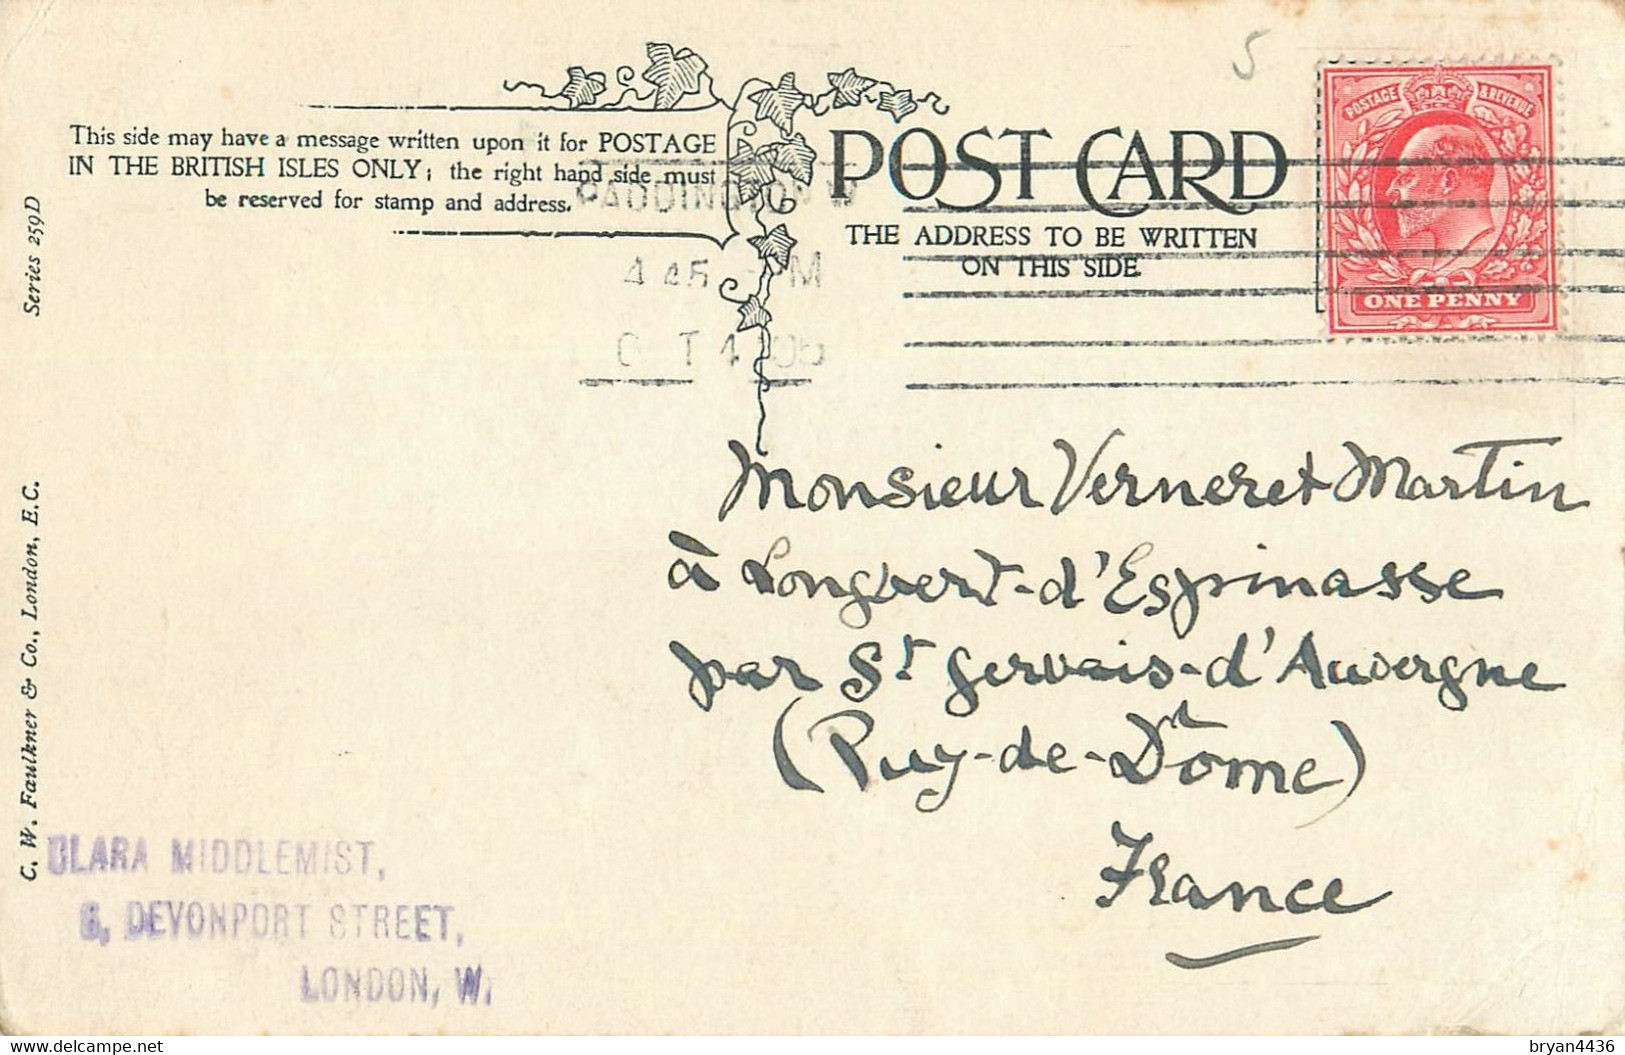 5
This side may have a message written upon it for POSTAGE
IN THE BRITISH ISLES ONLY; the right hand side must
be reserved for stamp and address.
POST CARD
THE ADDRESS TO BE WRITTEN
ON THIS SIDE
POSTAGE & REVENUE
ONE PENNY
PADDINGTON W
4 45 PM
Series 259D
C. W. Faulkner & Co., London, E.C.
Monsieur Verneret Martin
à Longvert-d'Espinasse
par St Gervais-d'Auvergne
(Puy-de-Dôme)
France
CLARA MIDDLEMIST,
6, DEVONPORT STREET,
LONDON, W.
bryan4436